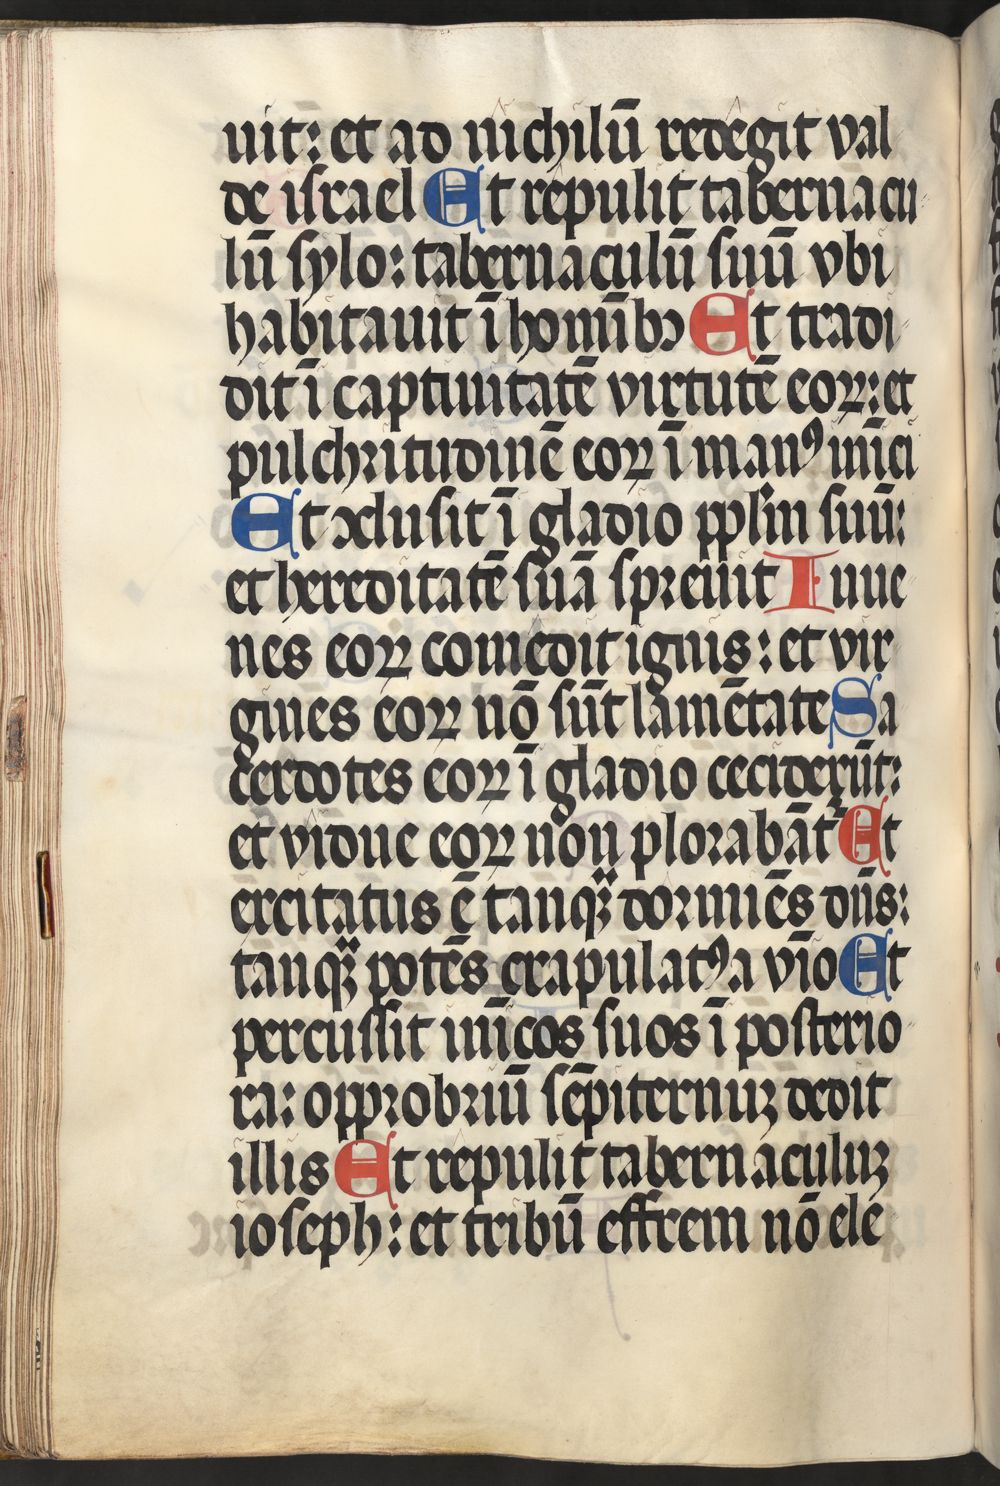 uit: et ad nichilū redegit val
de israel Et repulit tabernacu
lū sylo: tabernaculū suū vbi
habitauit ī homībꝫ Et tradi
dit ī captiuitatē virtutē eoꝝ: et
pulchritudinē eoꝝ ī manꝰ inīci
Et ꝯclusit ī gladio pplm̄ suū:
et hereditatē suā spreuit Iuue
nes eoꝝ comedit ignis: et vir
gines eoꝝ nō sūt lamētate Sa
cerdotes eoꝝ ī gladio ceciderūt:
et vidue eoꝝ non plorabāt᷑ Et
excitatus ē tanqᷓꝫ dormiēs dn̄s:
tanqᷓꝫ potēs crapulatꝰ a vīo Et
percussit inīcos suos ī posterio
ra: opprobriū sēpiternuꝫ dedit
illis Et repulit tabernaculuꝫ
ioseph: et tribū effrem nō ele